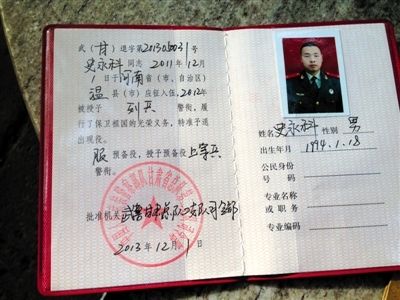 武（甘）退字第 号
史永科 同志 2011 年 12 月
1 日于 河南 省（市、自治区）
温 县（市）应征入伍，2012年
被授予 列兵 警衔，履
行了保卫祖国的光荣义务，特准予退
出现役。
服 预备役，授予预备役 上等兵
警衔。
批准机关 武警甘肃总队 支队司令部
2013 年 12 月 1 日
姓名 史永科 性别 男
出生年月 1994.1.18
公民身份
号 码
专业名称
或 职 务
专业编码